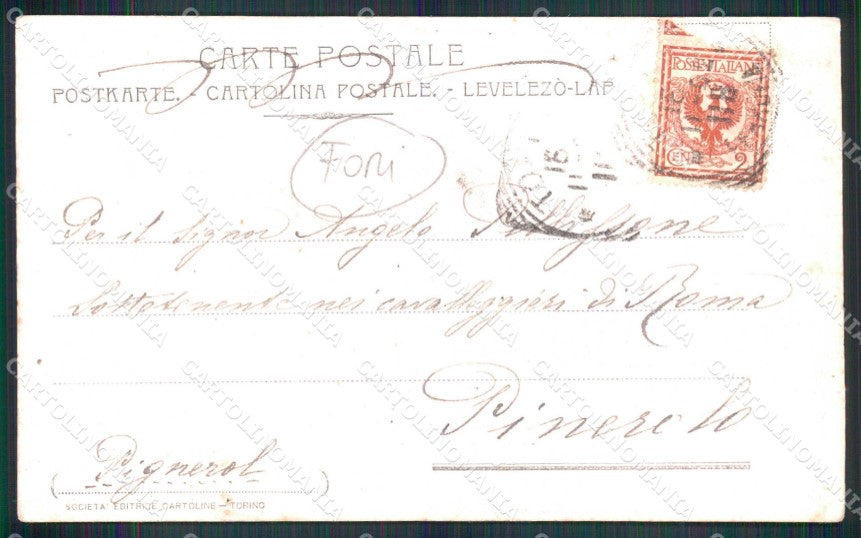 CARTE POSTALE
POSTKARTE. - CARTOLINA POSTALE. - LEVELEZÒ-LAP
POSTE ITALIANE
CENT. 2
Fori
16
11
Per il Signor Angelo
Sottotenente nei cavalleggieri di Roma
Pinerolo
(Pignerol)
SOCIETA' EDITRICE CARTOLINE - TORINO
CARTOLINOMANIA